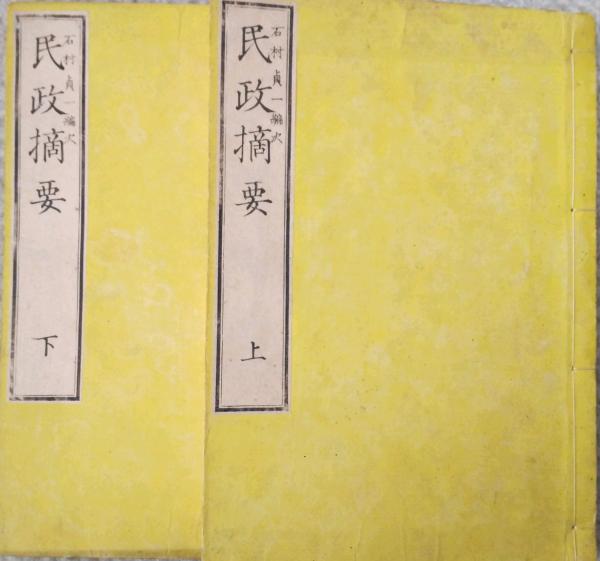 石村貞一編次
民政摘要
上
石村貞一編次
民政摘要
下